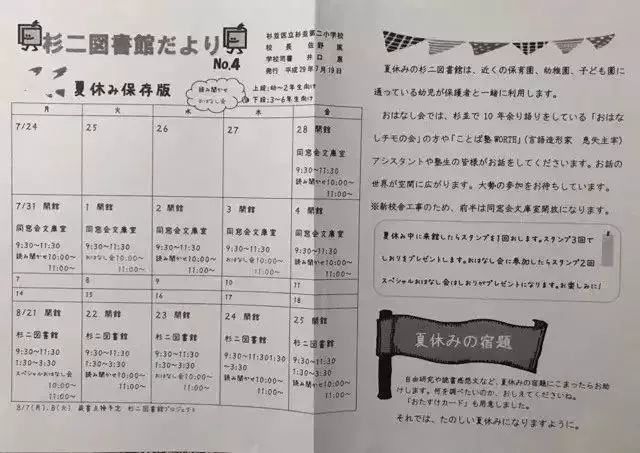 杉二図書館だより
No.4
杉並区立杉並第二小学校
校長 佐野 篤
学校司書 井口 恵
発行 平成29年7月19日
夏休み保存版
読み聞かせ
おはなし会
上段:幼~2年生向け
下段:3~6年生向け
月 火 水 木 金
7/24 25 26 27 28 開館
同窓会文庫室
9:30~11:30
読み聞かせ10:00~
11:00~
7/31 開館 1 開館 2 開館 3 開館 4 開館
同窓会文庫室 同窓会文庫室 同窓会文庫室 同窓会文庫室 同窓会文庫室
9:30~11:30 9:30~11:30 9:30~11:30 9:30~11:30 9:30~11:30
読み聞かせ10:00~ おはなし会10:00~ 読み聞かせ10:00~ おはなし会10:00~ 読み聞かせ10:00~
11:00~ 11:00~ 11:00~ 11:00~ 11:00~
7 8 9 10 11
14 15 16 17 18
8/21 開館 22 開館 23 開館 24 開館 25 開館
杉二図書館 杉二図書館 杉二図書館 杉二図書館 杉二図書館
9:30~11:30 9:30~11:30 9:30~11:30 9:30~11:30 9:30~11:30
1:30~3:30 1:30~3:30 1:30~3:30 1:30~3:30 1:30~3:30
スペシャルおはなし会 読み聞かせ10:00~ おはなし会10:00~ 読み聞かせ10:00~ おはなし会10:00~
10:00~ 11:00~ 11:00~ 11:00~ 11:00~
11:00~
8/7(月)、8(火) 蔵書点検予定 杉二図書館プロジェクト
夏休みの杉二図書館は、近くの保育園、幼稚園、子ども園に
通っている幼児が保護者と一緒に利用します。
おはなし会では、杉並で10年余り語りをしている「おはな
しチモの会」の方や「ことば塾WORTE」(言語造形家 息失主宰)
アシスタントや塾生の皆様がお話をしてくださいます。お話の
世界が空間に広がります。大勢の参加をお待ちしています。
※新校舎工事のため、前半は同窓会文庫室開放になります。
夏休み中に来館したらスタンプを1回おします。スタンプ3回で
しおりをプレゼントします。おはなし会に参加したらスタンプ2回
スペシャルおはなし会はしおりがプレゼントになります。お楽しみに!
夏休みの宿題
自由研究や読書感想文など、夏休みの宿題にこまったらお助
けします。何を調べたいのか、おしえてくださいね。
「おたすけカード」も用意しました。
それでは、たのしい夏休みになりますように。